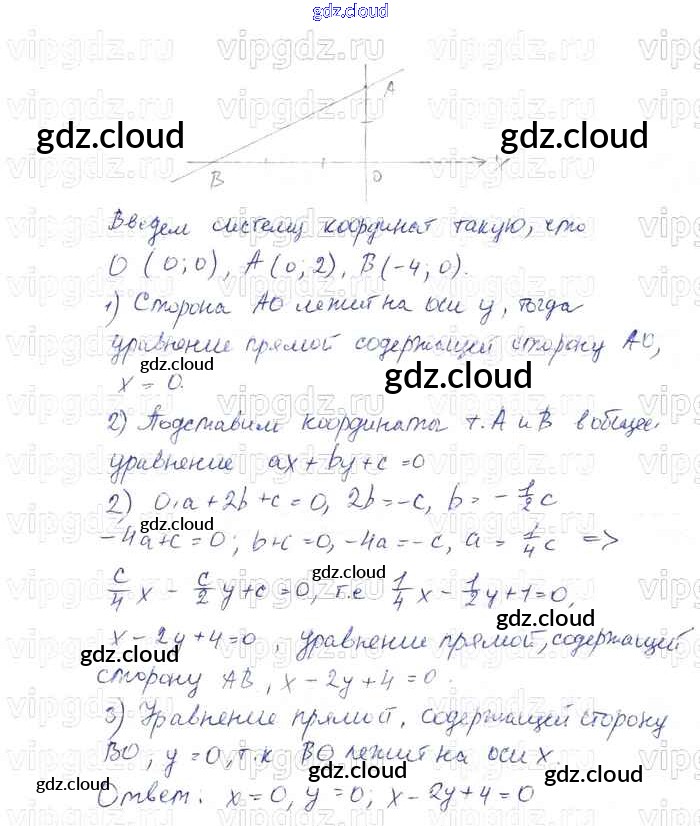 gdz.cloud
A
B
0
x
gdz.cloud
gdz.cloud
Введем систему координат такую, что
O (0;0), A (0; 2), B(-4; 0).
1) Сторона AO лежит на оси y, тогда
уравнение прямой содержащей сторону AO,
x = 0.
gdz.cloud
gdz.cloud
2) Подставим координаты т. A и B в общее
уравнение ax + by + c = 0
2) 0·a + 2b + c = 0, 2b = -c, b = -1/2 c
-4a + c = 0; b + c = 0, -4a = -c, a = 1/4 c =>
gdz.cloud
c/4 x - c/2 y + c = 0, т.е 1/4 x - 1/2 y + 1 = 0,
gdz.cloud
x - 2y + 4 = 0, уравнение прямой, содержащей
gdz.cloud
gdz.cloud
сторону AB, x - 2y + 4 = 0.
3) Уравнение прямой, содержащей сторону
BO, y = 0, т.к BO лежит на оси x.
gdz.cloud
gdz.cloud
gdz.cloud
Ответ: x = 0, y = 0; x - 2y + 4 = 0